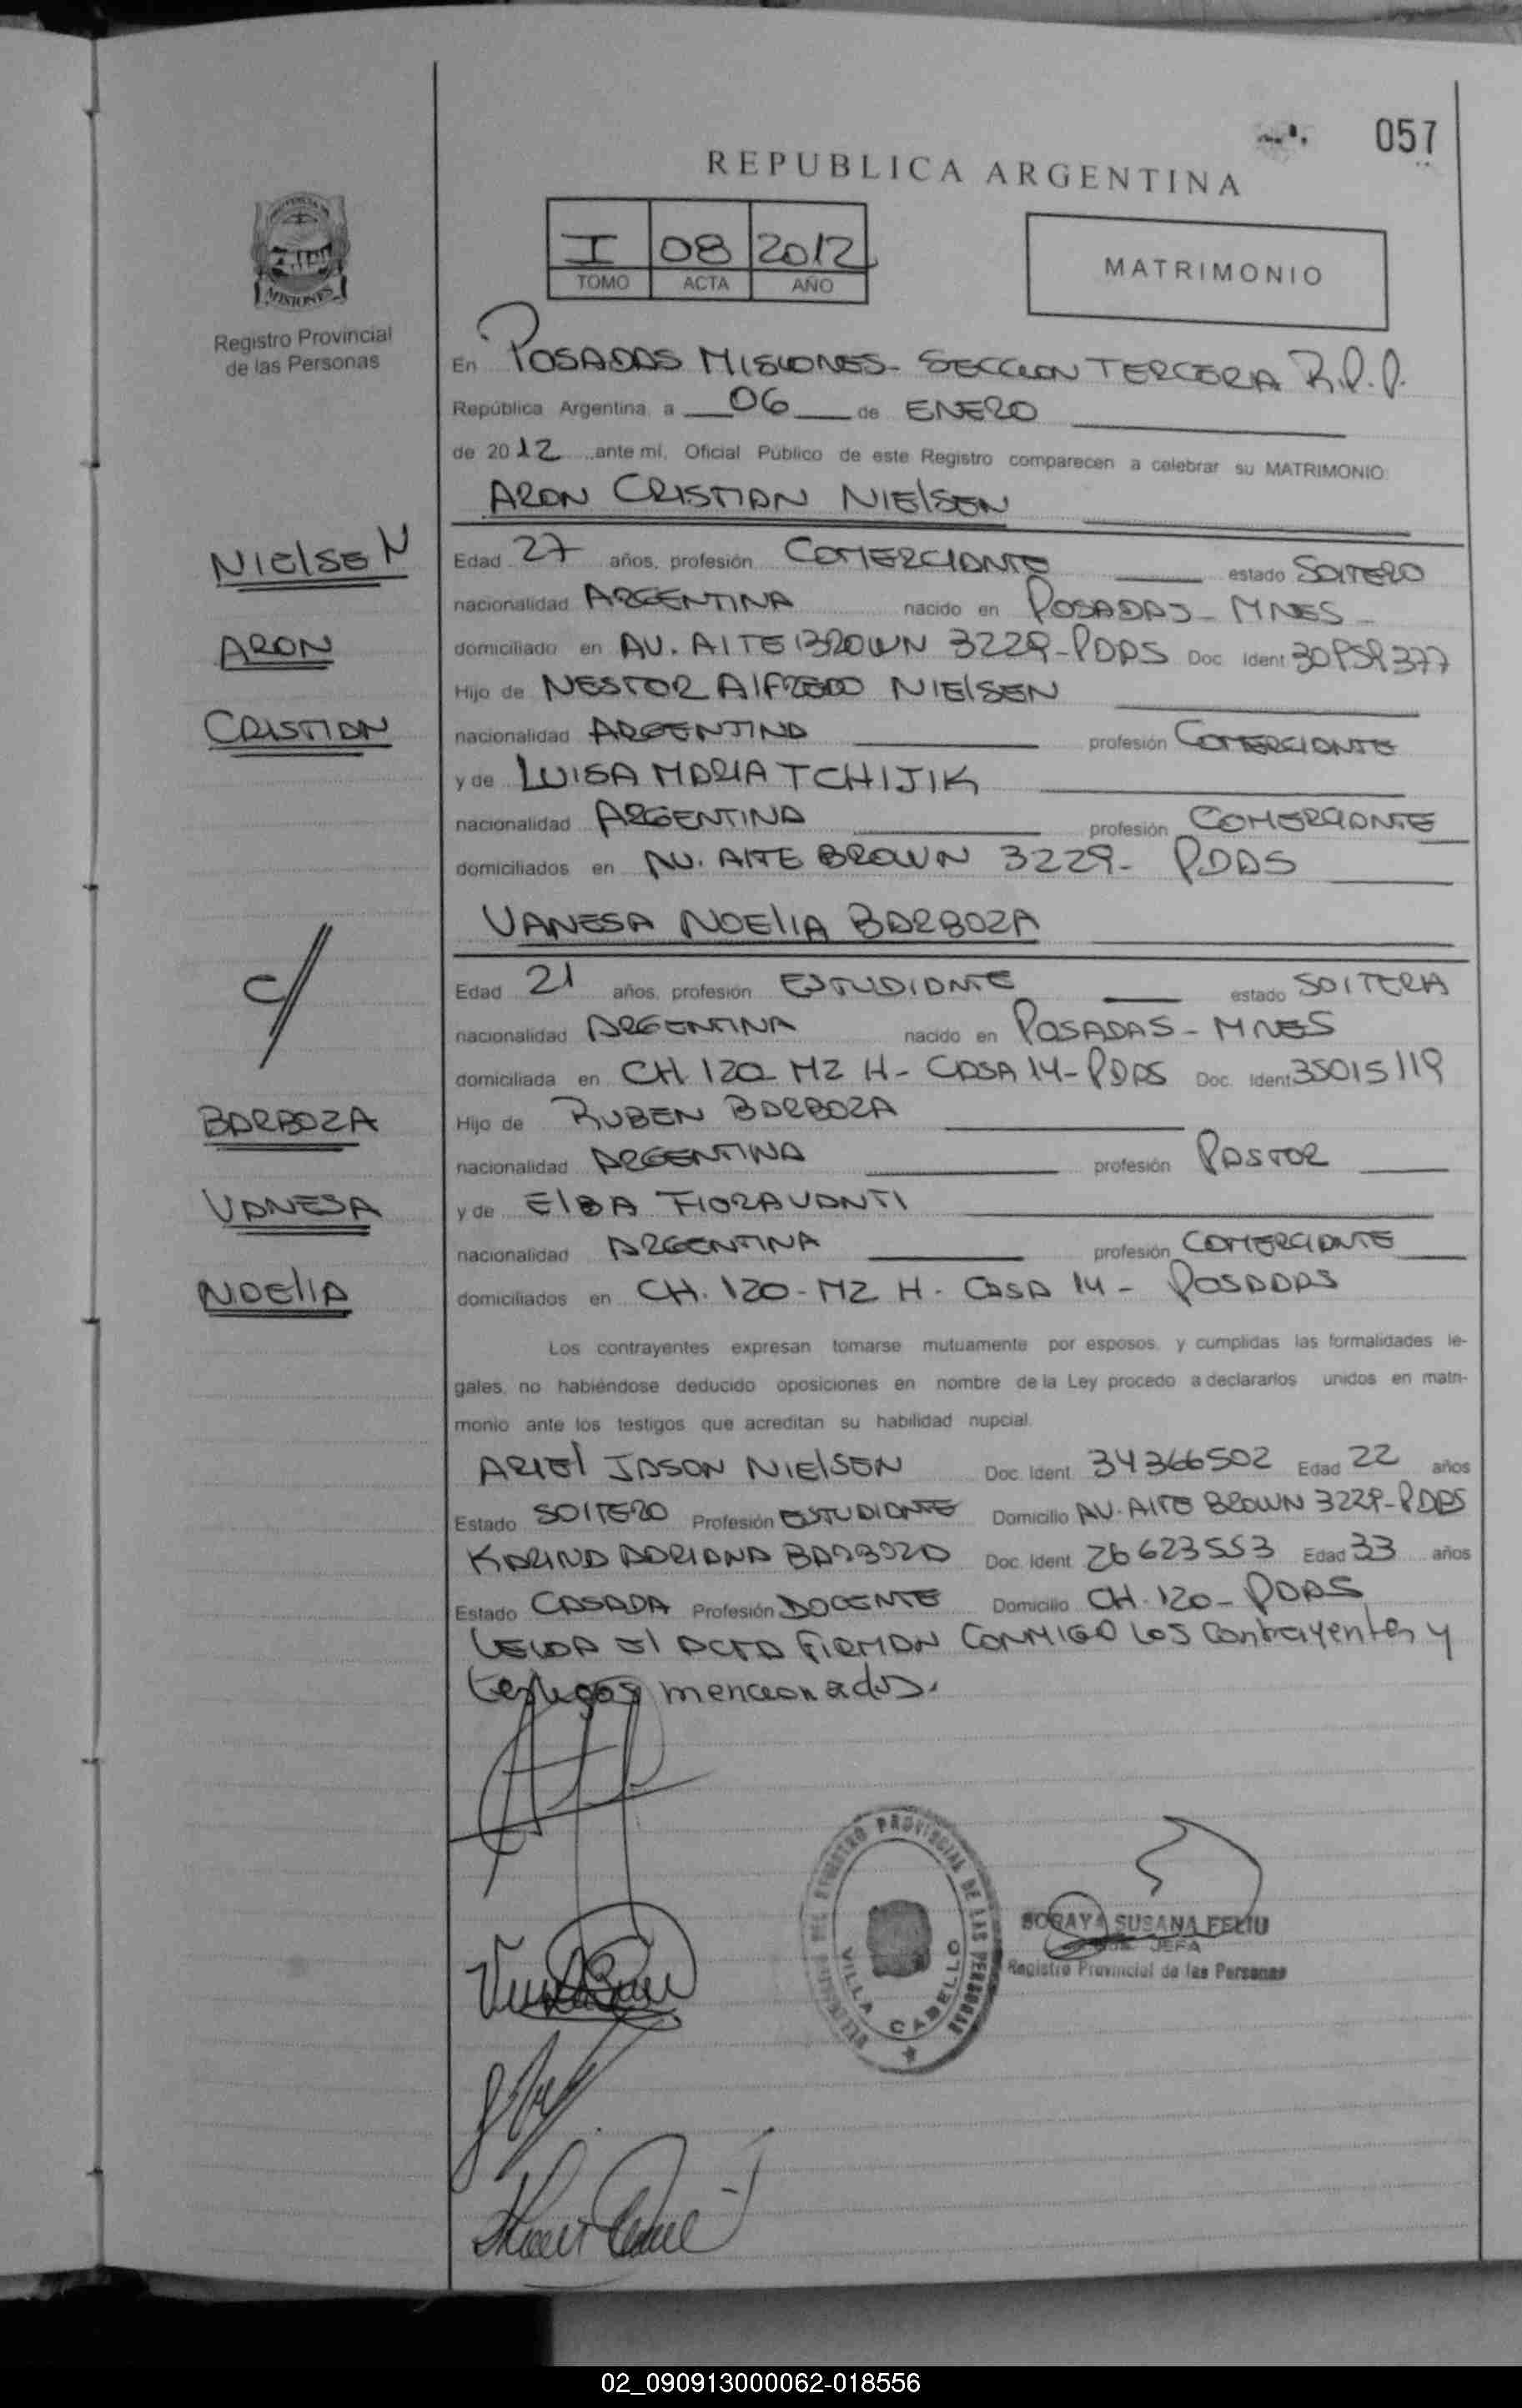 057
REPUBLICA ARGENTINA
I 08 2012
TOMO ACTA AÑO
MATRIMONIO
MISIONES
Registro Provincial
de las Personas
En POSADAS MISIONES- SECCION TERCERA R.P.P.
República Argentina, a 06 de ENERO
de 2012 ante mí, Oficial Público de este Registro comparecen a celebrar su MATRIMONIO:
ARON CRISTIAN NIELSEN
NIELSEN
Edad 27 años, profesión COMERCIANTE estado SOLTERO
nacionalidad ARGENTINA nacido en POSADAS - MNES -
ARON
domiciliado en AV. ALTE BROWN 3229-PDAS Doc. Ident. 30959377
Hijo de NESTOR ALFREDO NIELSEN
CRISTIAN
nacionalidad ARGENTINA profesión COMERCIANTE
y de LUISA MARIA TCHIJIK
nacionalidad ARGENTINA profesión COMERCIANTE
domiciliados en AV. ALTE BROWN 3229- PDAS
VANESA NOELIA BARBOZA
C/
Edad 21 años, profesión ESTUDIANTE estado SOLTERA
nacionalidad ARGENTINA nacido en POSADAS - MNES
domiciliada en CH 120 MZ H- CASA 14-PDAS Doc. Ident. 35015119
BARBOZA
Hijo de RUBEN BARBOZA
nacionalidad ARGENTINA profesión PASTOR
VANESA
y de ELBA FIORAVANTI
nacionalidad ARGENTINA profesión COMERCIANTE
NOELIA
domiciliados en CH. 120-MZ H. CASA 14 - POSADAS
Los contrayentes expresan tomarse mutuamente por esposos, y cumplidas las formalidades le-
gales, no habiéndose deducido oposiciones en nombre de la Ley procedo a declararlos unidos en matri-
monio ante los testigos que acreditan su habilidad nupcial.
ARIEL JASON NIELSEN Doc. Ident. 34366502 Edad 22 años
Estado SOLTERO Profesión ESTUDIANTE Domicilio AV. ALTE BROWN 3229-PDAS
KARINA ADRIANA BARBOZA Doc. Ident. 26623553 Edad 33 años
Estado CASADA Profesión DOCENTE Domicilio CH. 120- PDAS
LEIDA EL ACTA FIRMAN CONMIGO LOS contrayentes y
testigos mencionados.
REGISTRO PROVINCIAL DE LAS PERSONAS
VILLA CABELLO
SORAYA SUSANA FELIU
JEFA
Registro Provincial de las Personas
02_090913000062-018556